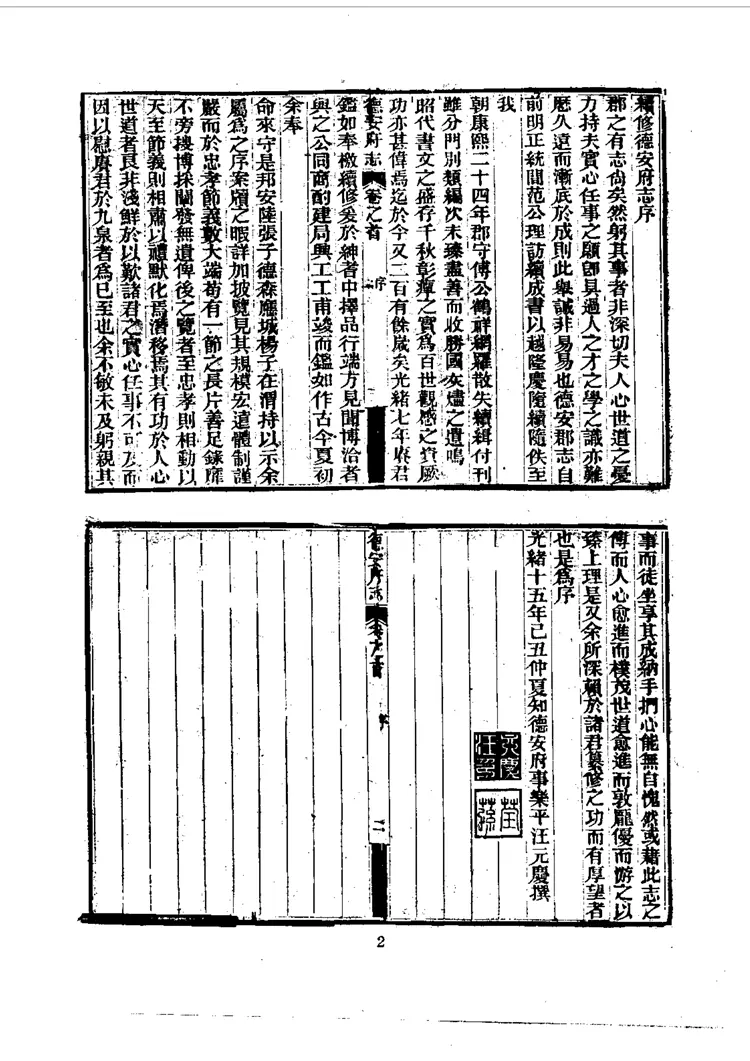 續修德安府志序
郡之有志尚矣然躬其事者非深切夫人心世道之憂
力持夫實心任事之願卽具過人之才之學之識亦難
歷久遠而漸底於成則此舉誠非易易也德安郡志自
前明正統間范公理訪續成書以越隆慶隨續隨佚至
我
朝康熙二十四年郡守傅公鶴祥網羅散失續緝付刊
雖分門別類編次未臻盡善而收勝國灰燼之遺鳴
昭代書文之盛存千秋彰癉之實爲百世觀感之資厥
功亦甚偉焉迄於今又二百有餘歲矣光緒七年賡君
德安府志 卷之首 序
鑑如奉檄續修爰於紳耆中擇品行端方見聞博洽者
與之公同商酌建局興工工甫竣而鑑如作古今夏初
余奉
命來守是邦安陸張子德森應城楊子在渭持以示余
屬爲之序案牘之暇詳加披覽見其規模宏遠體制謹
嚴而於忠孝節義數大端苟有一節之長片善足錄靡
不旁搜博採闡發無遺俾後之覽者至忠孝則相勸以
天至節義則相肅以禮默化焉潛移焉其有功於人心
世道者良非淺鮮於以歎諸君之實心任事不可及而
因以慰賡君於九泉者爲已至也余不敏未及躬親其
事而徒坐享其成納手捫心能無自愧然或藉此志之
傳而人心愈進而樸茂世道愈進而敦龐優而游之以
臻上理是又余所深賴於諸君纂修之功而有厚望者
也是爲序
光緒十五年己丑仲夏知德安府事樂平汪元慶撰
德安府志 卷之首 序 二
2